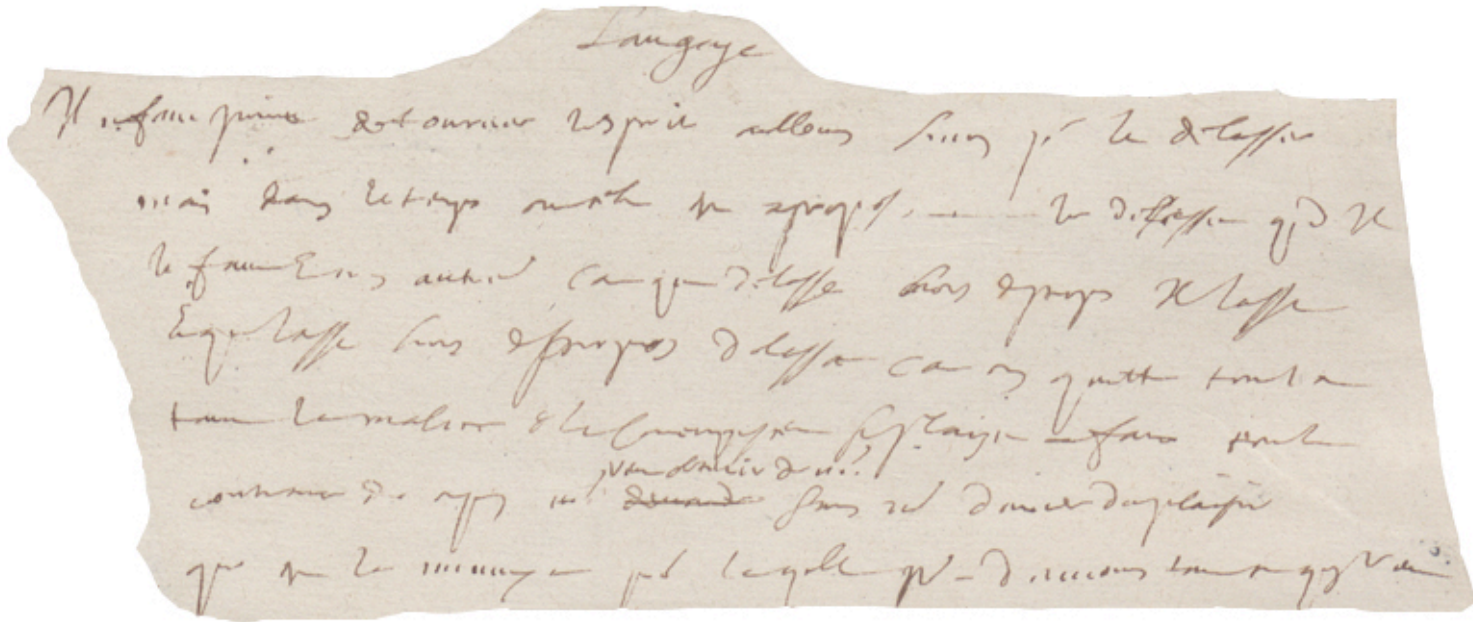 Langage
Il ne faut point detourner l'esprit ailleurs sinon pr le delasser
mais dans le temps ou cela est a propos. le delasser qd il
le faut & non autremt car qui delasse hors de propos il lasse
& qui lasse hors de propos delasse car on quitte tout la
tant la malice de la concupiscence se plaist a faire tout le
contraire de ce qu'on veut obtenir de nous sans nous donner du plaisir
qui est la monnoye pr laquelle ns donnons tout ce qu'on veut